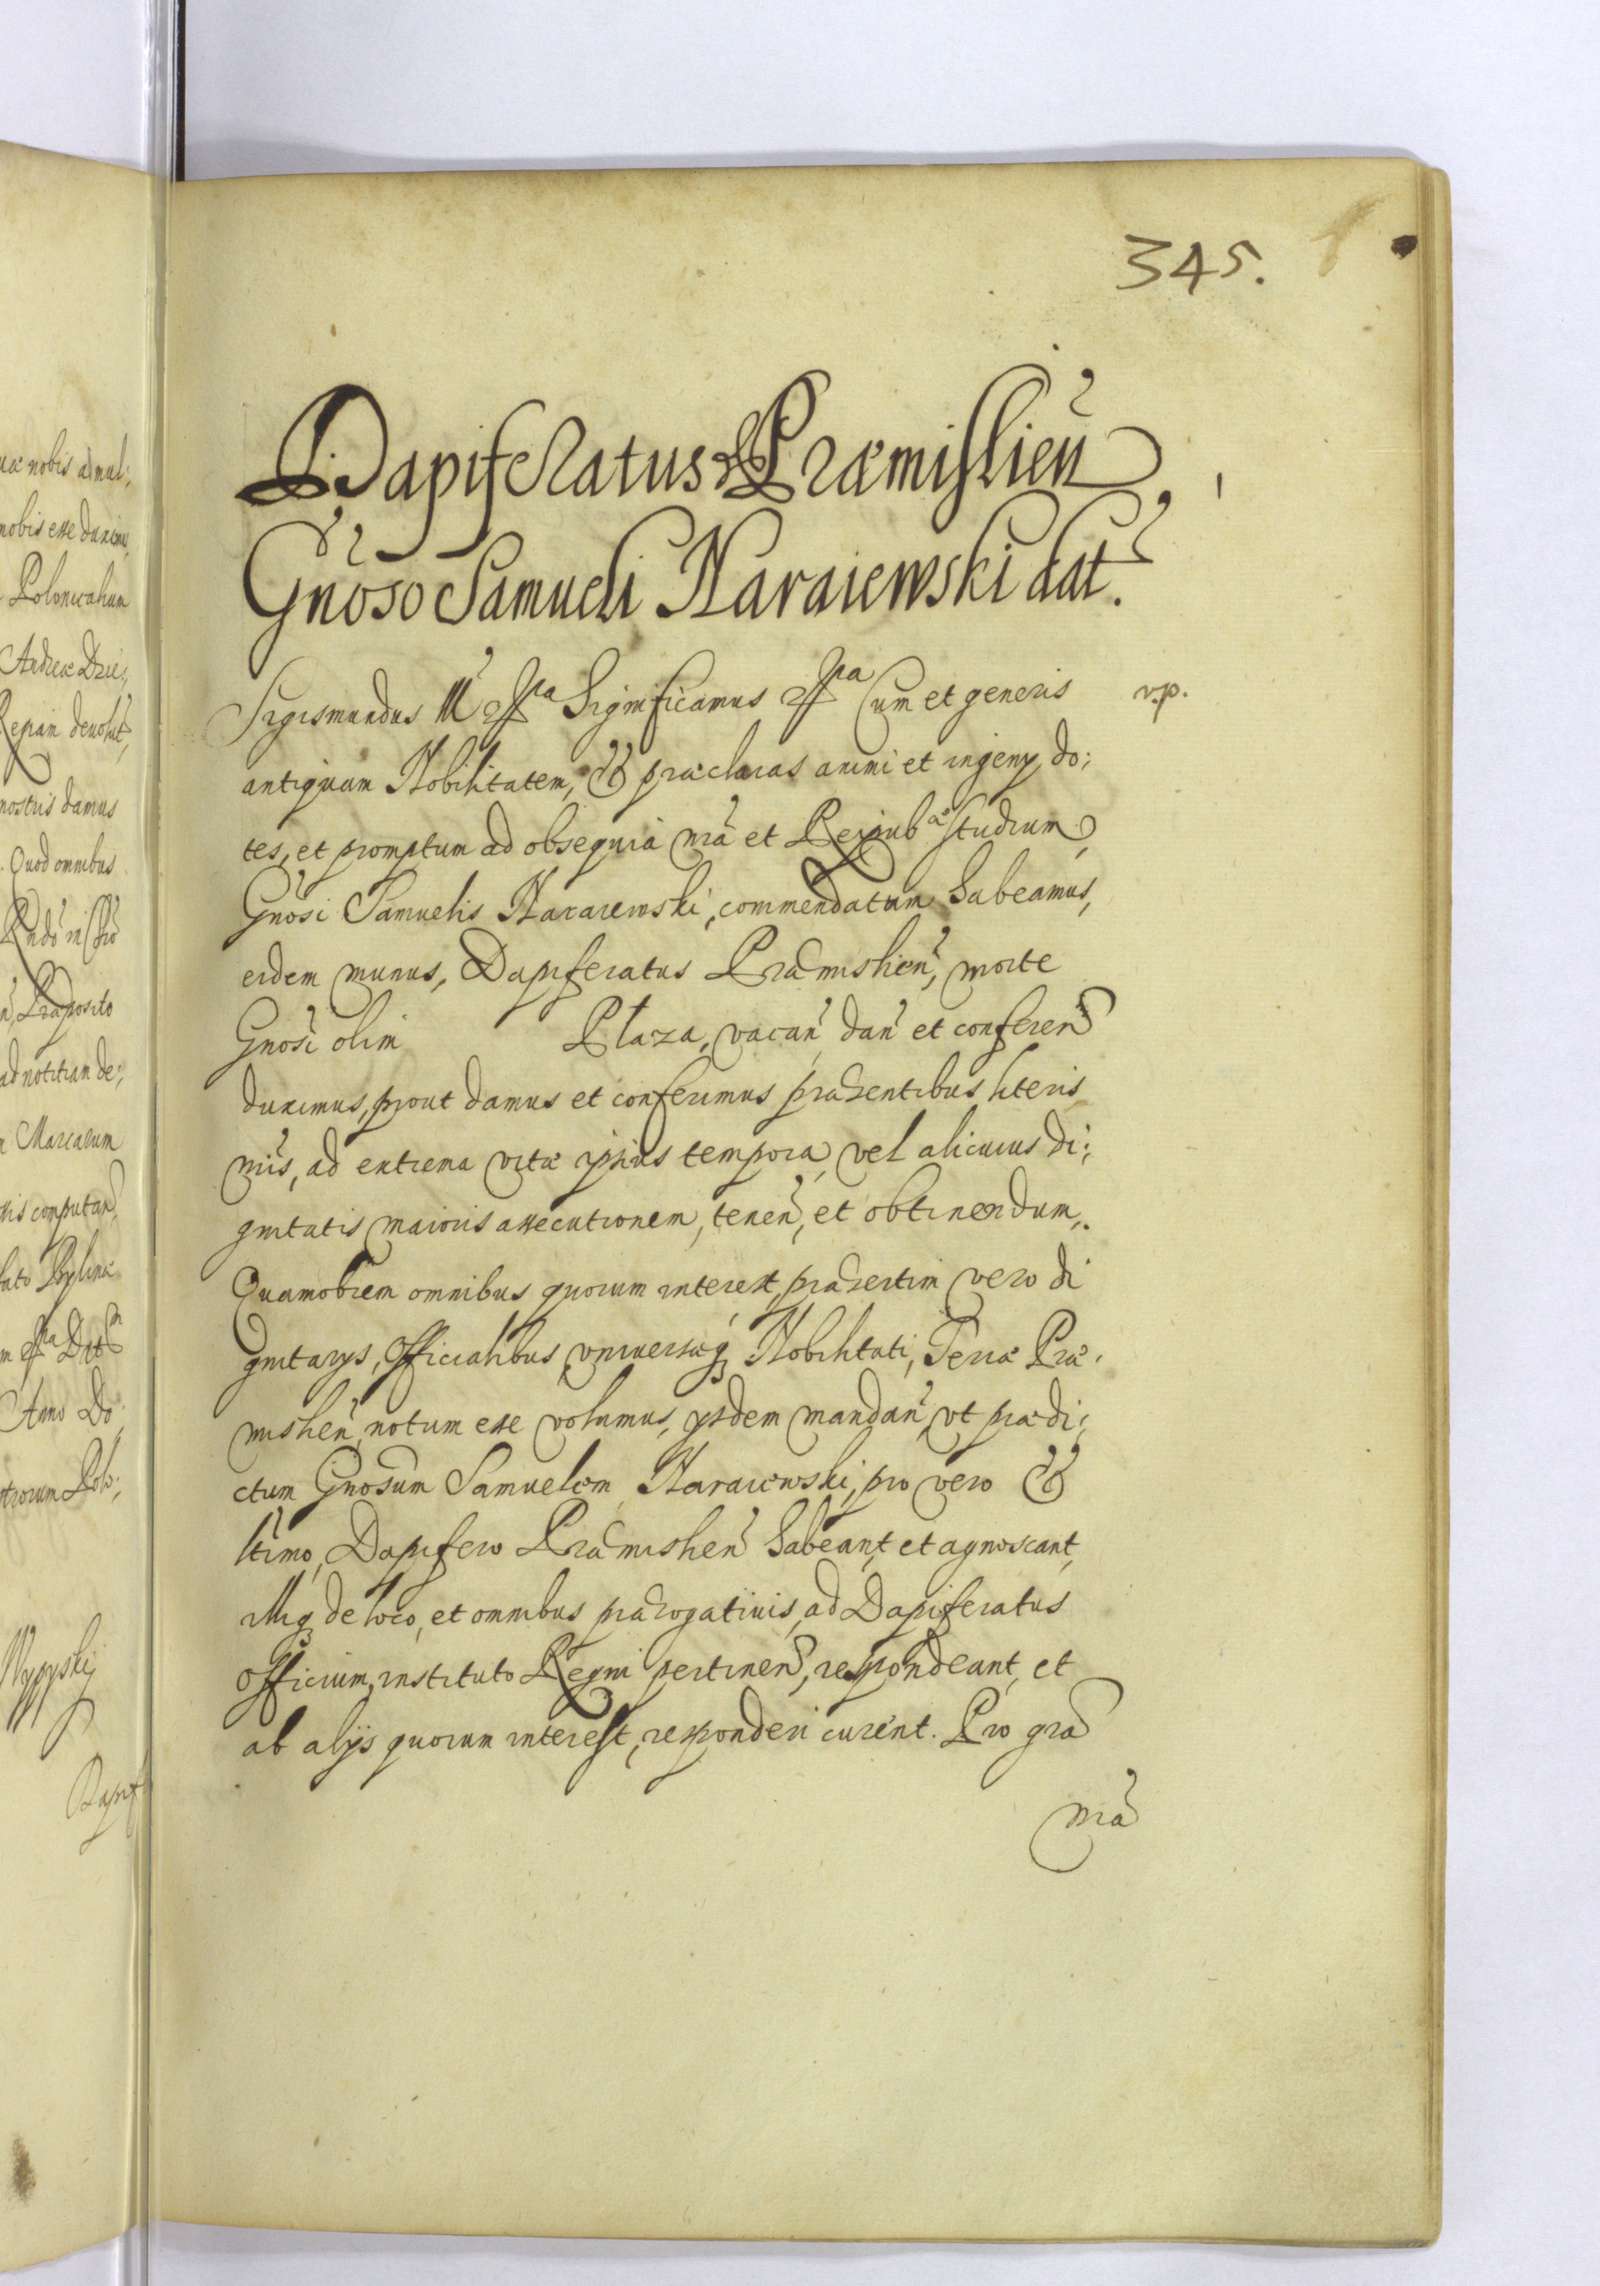 345.
Dapiferatus Præmislień
Gnoso Samueli Naraiewski dat.
Sigismundus III Significamus Cum et generis
v.p.
antiquam Nobilitatem, et præclaras animi et ingenij do:
tes, et promptum ad obsequia nrã et Reipub studium
Gnosi Samuelis Naraiewski, commendatum habeamus,
eidem munus, Dapiferatus Præmislień, morte
Gnosi olim Płaza, vacań dań et confereń
duximus, prout damus et conferimus præsentibus literis
nris, ad extrema vitæ ipsius tempora, vel alicuius di:
gnitatis maioris assecutionem, teneń, et obtinendum,.
Quamobrem omnibus quorum interest, præsertim vero di
gnitarijs, Officialibus, vniuersæq Nobilitati, Terræ Præ.
mislień, notum esse volumus, ijsdem mandań, vt prædi:
ctum Gnosum Samuelem Naraiewski, pro vero et
ltimo, Dapifero Præmislień habeant, et agnoscant,
illiq de loco, et omnibus prærogatiuis, ad Dapiferatus
Officium, instituto Regni pertineń, respondeant, et
ab alijs quorum interest, responderi curent. Pro gra
nrã
uæ nobis ad mul:
nobis esse duximus,
Polonicalium
Andreæ Dzie:
devolut,
nostris damus
. Quod omnibus
Præposito
ad notitiam de:
Marcarum
computan
Anno Do
Wypyski
Dapif